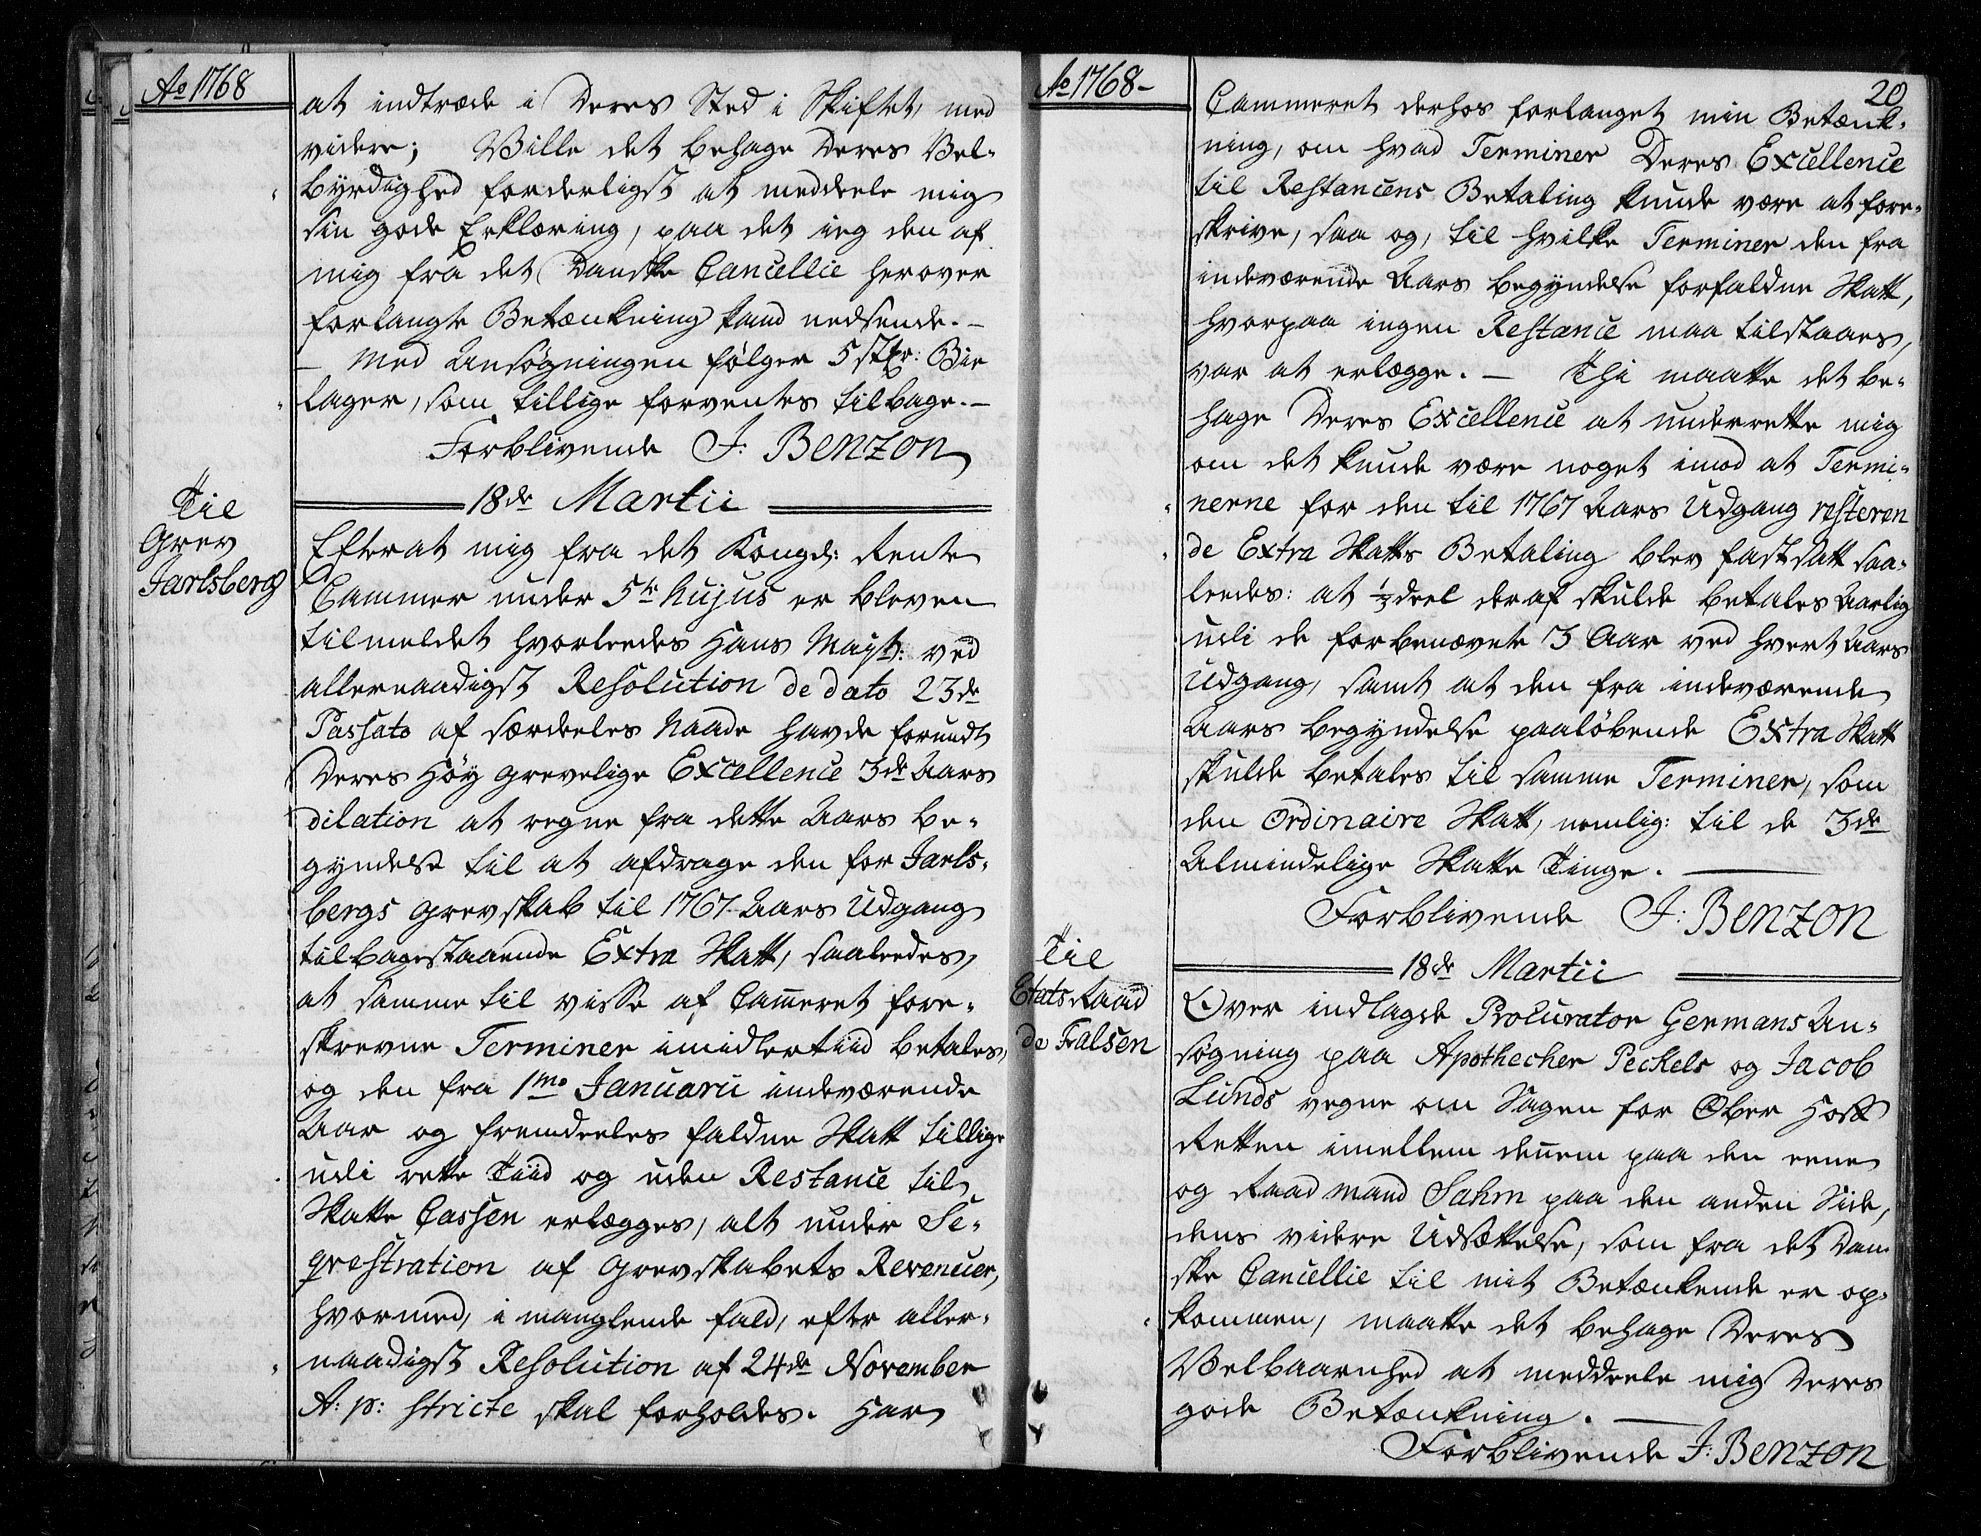 Ao 1768
at indtræde i Deres Sted i Skiftet, med
videre; Wille det behage Deres Vel-
byrdighed forderligst at meddeele mig
sin gode Erklæring, paa det ieg den af
mig fra det Danske Cancellie herover
forlangte Betænkning kand nedsende. –
– Med Ansøgningen følger 5 stkr: Bie
lager, som tillige forventes tilbage. –
Forblivende J: Benzon
18de Martii
Til
Grev
Jarlsberg
Efterat mig fra det Kongel: Rente
Cammer under 5te hujus er bleven
tilmeldet hvorleedes Hans Mayt: ved
allernaadigst Resolution de dato 23de
Passato af særdeeles Naade havde forundt
Deres Høy Grevelige Excellence 3de Aars
dilation at regne fra dette Aars Be-
gyndelse til at afdrage den for Jarls-
bergs Grevskab til 1767 Aars Udgang
tilbagestaaende Extra Skatt, saaleedes,
at samme til visse af Cam̄eret fore-
skrevne Terminer imidlertiid betales,
og den fra 1mo Januarii indeværende
Aar og fremdeeles faldne Skatt tillige
udi rette Tiid og uden Restance til
Skatte Cassen erlægges, alt under Se-
qvestration af Grevskabets Revenuer,
hvormed, i manglende fald, efter aller-
naadigst Resolution af 24de November
A: p: stricte skal forholdes. Har
Ao 1768 –
20
Cammeret derhos forlanget min Betænk-
ning, om hvad Terminer Deres Excellence
til Restancens Betaling kunde være at fore-
skrive, saa og, til hvilke Terminer den fra
indeværende Aars begyndelse forfaldne Skatt,
hvorpaa ingen Restance maa tilstaaes,
var at erlægge. – Thi maatte det be-
hage Deres Excellence at underrette mig
om det kunde være noget imod at Termi-
nerne for den til 1767 Aars Udgang resteren
de Extra Skatts Betaling blev fastsatt saa-
leedes: at 1/3 deel deraf skulde betales Aarlig
udi de forbenævnte 3 Aar ved hvert Aars
Udgang, samt at den fra indeværende
Aars begyndelse paaløbende Extra Skatt
skulde betales til samme Terminer, som
den Ordinaire Skatt, nemlig: til de 3de
Almindelige Skatte Tinge.
Forblivende J: Benzon
18de Martii
Til
Etats Raad
de Falsen
Over indlagde Procurator Germans An-
søgning paa Apothecher Peckels og Jacob
Lunds vegne om Sagen for Ober Hoff
Retten imellem den̄em paa den eene
og Raadmand Sahm paa den anden Side,
dens videre Udsættelse, som fra det Dan
ske Cancellie til mit Betænkende er op-
kommen, maatte det behage Deres
Velbaarnhed at meddeele mig Deres
gode Betænkning.
Forblivende J: Benzon